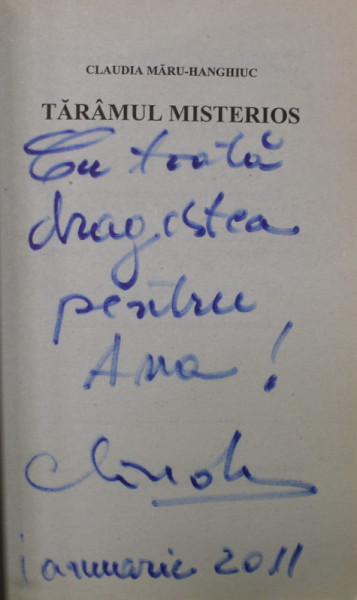 CLAUDIA MĂRU-HANGHIUC
TĂRÂMUL MISTERIOS
Cu toată
dragostea
pentru
Ana !
ianuarie 2011